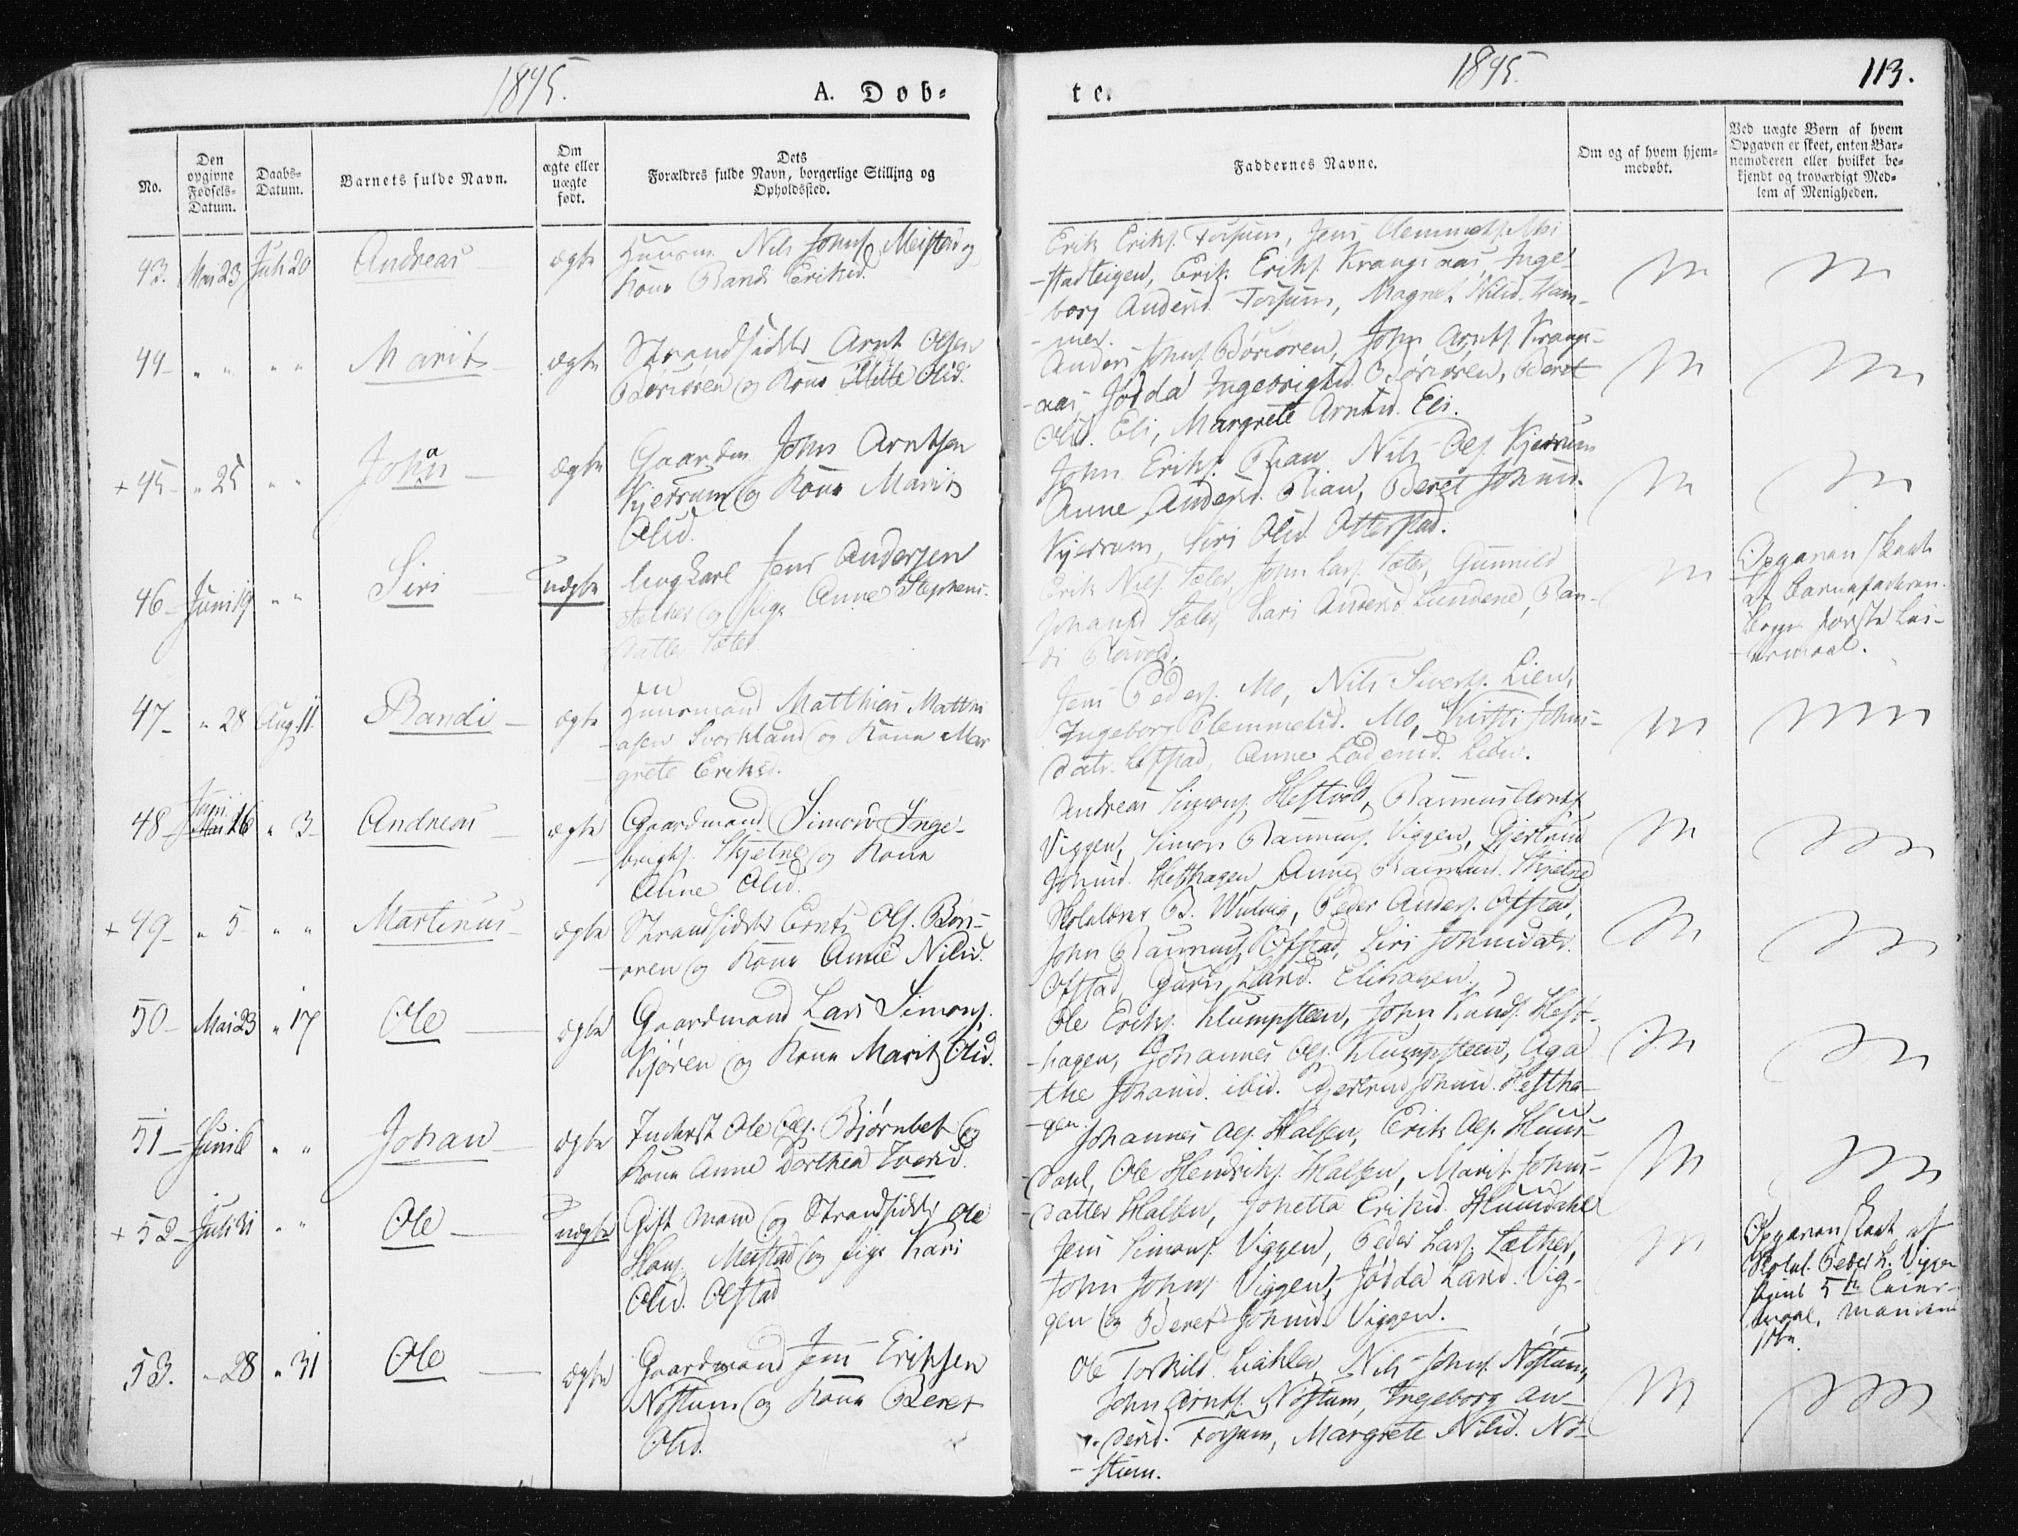 1845.
A. Døb-
te.
1845.
113.
No.
Den
opgivne
Fødsels-
Datum.
Daabs-
Datum.
Barnets fulde Navn.
Om
ægte eller
uægte
født.
Dets
Forældres fulde Navn, borgerlige Stilling og
Opholdssted.
Faddernes Navne.
Om og af hvem hjem-
medøbt.
Ved uægte Børn af hvem
Opgaven er skeet, enten Bar-
nemoderen eller hvilket be-
kjendt og troværdigt Med-
lem af Menigheden.
43. Mai 23 Juli 20 Andreas ægte Huusm. Nils Johns. Meistad og
Kone Randi Eriksd.
Erik Eriks. Forsum, Jens Clemmets. Mei-
-stadteigen, Erik Eriks. Krangsaas, Inge-
-borg Andersd. Forsum, Magnet Nilsd. Ham-
-mer.
44 - " " " " Marit ægte Strandsidder Arnt Olsen
Børsøren og Kone Mette Olsd.
Anders Johns. Børsøren, John Arnts. Krangs-
-aas, Jødda Ingebrigtsd. Børsøren, Beret
Olsd. Eli, Margrete Arntsd. Eli.
+ 45 - " 25 " " Johan - ægte Gaardm. John Arntsen
Kjerrum og Kone Marit
Olsd.
John Eriks. Rian, Nils Ols. Kjerrum
Anne Andersd. Rian, Beret Johnsd.
Kjerrum, Siri Olsd. Otterstad.
46 - Juni 19 " " Siri uægte Ungkarl Jens Andersen
Sæther og Pige Anne Stephens-
datter Sæter.
Erik Nils. Sæter, John Lars. Sæter, Gunnild
Johansd. Sæter, Kari Andersd. Lundene, Ran-
-di
Opgaven skeet
af Barnefaderen.
Begges første Lei-
-ermaal.
47 - " 28 Aug. 11. Randi - ægte Huusmand Matthias Matthi-
-asen Svorkland og Kone Mar-
-grete Eriksd.
Jens Peders. Mo, Nils Siverts. Lien,
Ingeborg Clemmetsd. Mo, Kirsti Johns-
datr. Ofstad, Anne Lien.
48 - Juni 16 " 3 - Andreas - ægte Gaardmand Simon Inge-
-brigts. Skjetne og Kone
Anne Olsd.
Andreas Simons. Hestvold, Rasmus Arnts.
Viggen, Simon Rasmus. Viggen, Gjertrud
Johnsd. Hesthagen, Anne Rasmusd. Skjetne
+ 49 - " 5 - " " Martinus - ægte Strandsidder Ernts Ols. Børs-
-øren og Kone Anne Nilsd.
Skolelærer B. Wullum, Peder Anders. Ofstad,
John Rasmus. Ofstad, Siri Johnsdatr.
Ofstad, Guru Larsd. Elihagen.
50 - Mai 23 " 17 Ole ægte Gaardmand Lars Simons.
Kjøren og Kone Marit Olsd.
Ole Eriks. Klumpsteen, John Knuds. Hest-
-hagen, Johannes Ols. Klumpsteen, Aga-
the Johansd. ibid. Gjertrud Johnsd. Hestha-
-gen.
51 - Juni 6 " " Johan - ægte Inderst Ole Ols. Bjørnbet og
Kone Anne Dorthea Iversd.
Johannes Ols. Halsen, Erik Ols. Huus-
-dahl, Ole Hendriks. Halsen, Marit Johns-
-datter Halsen, Jonetta Eriksd. Huusdahl
+ 52 - Juli 31 " " Ole - uægte Gift Mand og Strandsidder Ole
Hans. Meistad og Pige Kari
Olsd. Ofstad
Jens Simons. Viggen, Peder Lars. Sæther,
John Johns. Viggen, Jødda Larsd. Vig-
gen og Beret Johnsd. Viggen.
Opgaven skeet af
Skolel. Peder L. Viggen
Pigens 5te Leier-
maal, Mandens
1ste.
53. " 28 " 31 Ole - ægte Gaardmand Jens Eriksen
Nøstum og Kone Beret
Olsd.
Ole Torkild. Nils Johns. Nøstum,
John Arnts. Nøstum, Ingeborg An-
dersd. Forsum, Margrete Nilsd. Nø-
-stum.